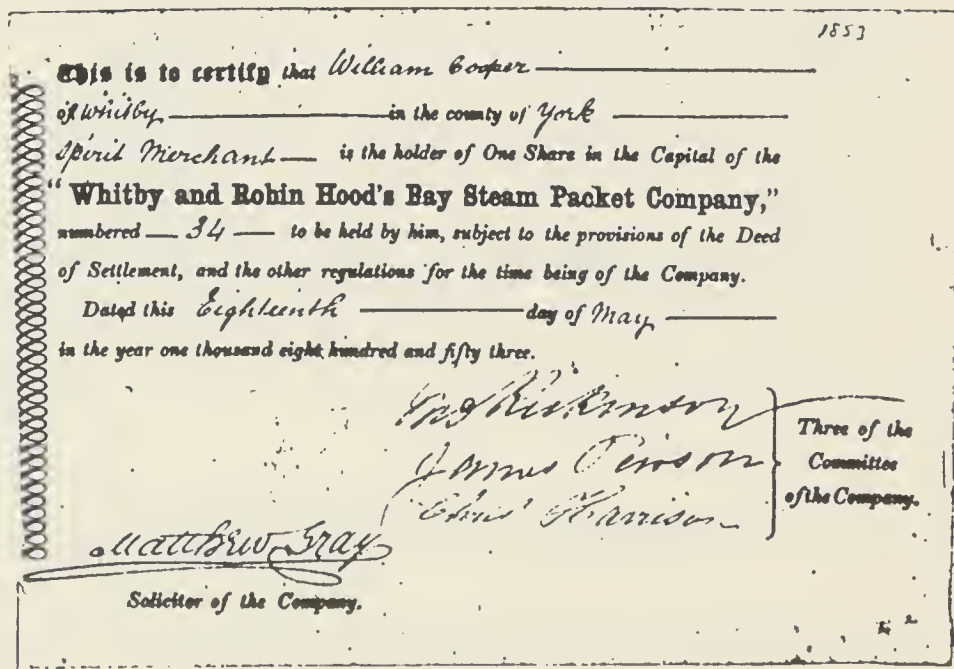 1853
This is to certify that William Cooper
of Whitby in the county of York
Spirit Merchant is the holder of One Share in the Capital of the
"Whitby and Robin Hood's Bay Steam Packet Company,"
numbered 34 to be held by him, subject to the provisions of the Deed
of Settlement, and the other regulations for the time being of the Company.
Dated this Eighteenth day of May
in the year one thousand eight hundred and fifty three.
Rickinson
James
Harrison
Three of the
Committee
of the Company.
Matthew Gray
Solicitor of the Company.